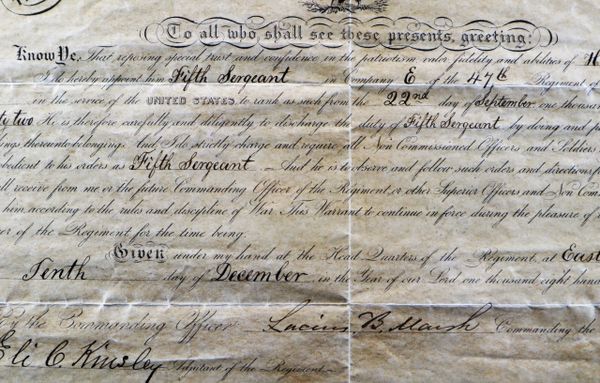 To all who shall see these presents, greeting:
Know Ye, That reposing special trust and confidence in the patriotism, valor, fidelity and abilities of H
I do hereby appoint him Fifth Sergeant in Company E of the 47th Regiment of
in the service of the UNITED STATES, to rank as such from the 22nd day of September one thousan
ty two He is therefore carefully and diligently to discharge the duty of Fifth Sergeant by doing and p
ings thereunto belongings. And I do strictly charge and require all Non Commissioned Officers and Soldiers
bedient to his orders as Fifth Sergeant And he is to observe and follow such orders and directions f
ll receive from me or the future Commanding Officer of the Regiment, or other Superior Officers and Non Comm
him, according to the rules and discipline of War. This Warrant to continue in force during the pleasure of
er of the Regiment for the time being.
Given under my hand at the Head Quarters of the Regiment, at East
Tenth day of December, in the Year of our Lord one thousand eight hund
By the Commanding Officer Lucius B. Marsh Commanding the
Eli C. Kinsley Adjutant of the Regiment